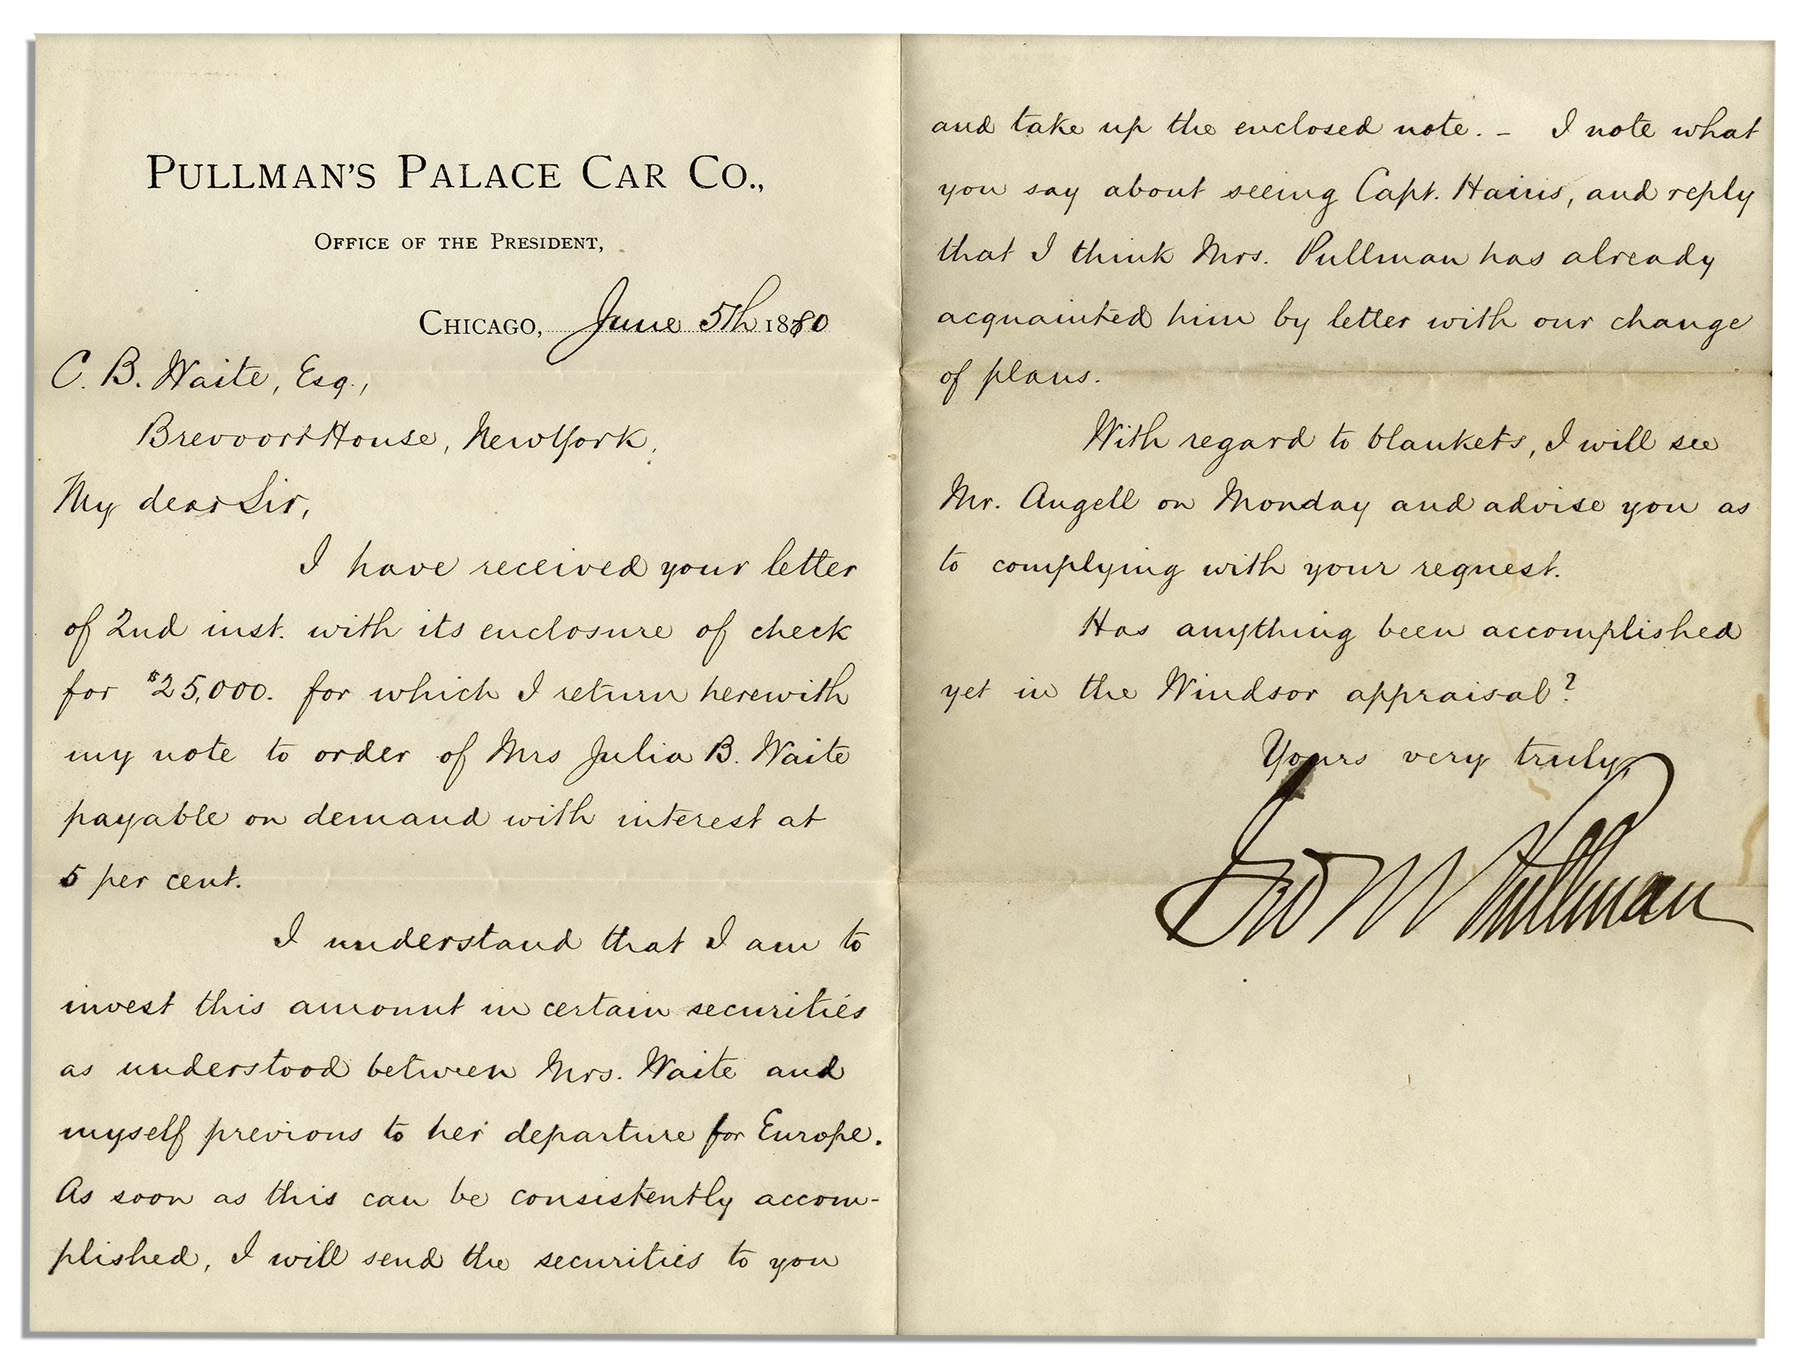 PULLMAN'S PALACE CAR CO.,
OFFICE OF THE PRESIDENT,
CHICAGO, June 5th 1880
C. B. Waite, Esq.,
Brevoort House, New York,
My dear Sir,
I have received your letter
of 2nd inst. with its enclosure of check
for $25,000. for which I return herewith
my note to order of Mrs Julia B. Waite
payable on demand with interest at
5 per cent.
I understand that I am to
invest this amount in certain securities
as understood between Mrs. Waite and
myself previous to her departure for Europe.
As soon as this can be consistently accom-
plished, I will send the securities to you
and take up the enclosed note. – I note what
you say about seeing Capt. Hains, and reply
that I think Mrs. Pullman has already
acquainted him by letter with our change
of plans.
With regard to blankets, I will see
Mr. Angell on Monday and advise you as
to complying with your request.
Has anything been accomplished
yet in the Windsor appraisal?
Yours very truly,
Geo M Pullman